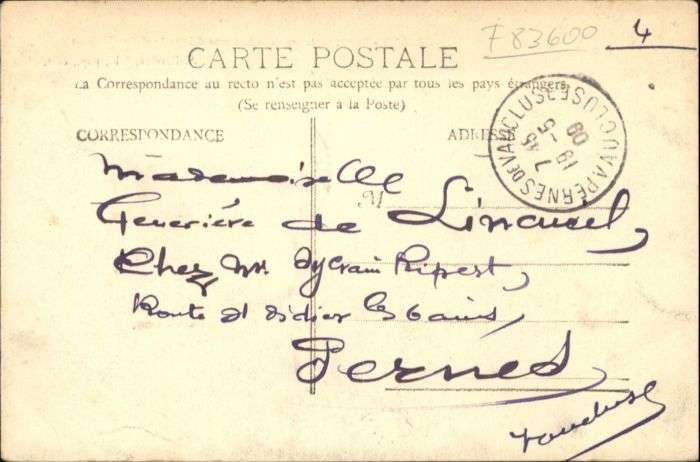 F 83600
4
CARTE POSTALE
La Correspondance au recto n'est pas acceptée par tous les pays étrangers
(Se renseigner à la Poste)
CORRESPONDANCE
ADRESSE
PERNES DE VAUCLUSE VAUCLUSE
7 45
18 - 5
09
Mademoiselle
Geneviève de
Chez Mr. Sylvain Ripert,
Route St Didier les bains,
Pernes
Vaucluse